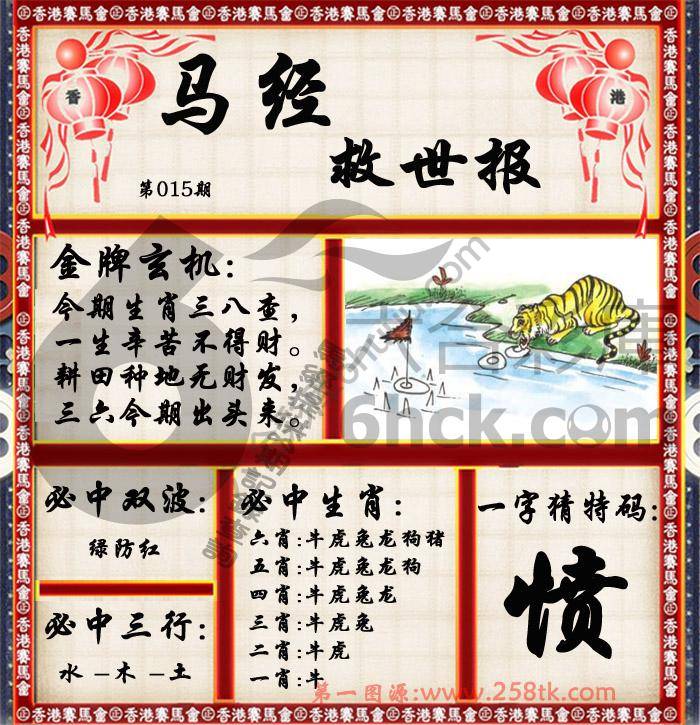 香港賽馬會㊣香港賽馬會㊣香港賽馬會㊣香港賽馬會㊣香港賽馬會
香 港
马经
救世报
第015期
金牌玄机:
今期生肖三八查,
一生辛苦不得财。
耕田种地无财发,
三六今期出头来。
6hck.com
必中双波:
绿防红
必中三行:
水 – 木 – 土
必中生肖:
六肖:牛虎兔龙狗猪
五肖:牛虎兔龙狗
四肖:牛虎兔龙
三肖:牛虎兔
二肖:牛虎
一肖:牛
一字猜特码:
愤
第一图源:www.258tk.com